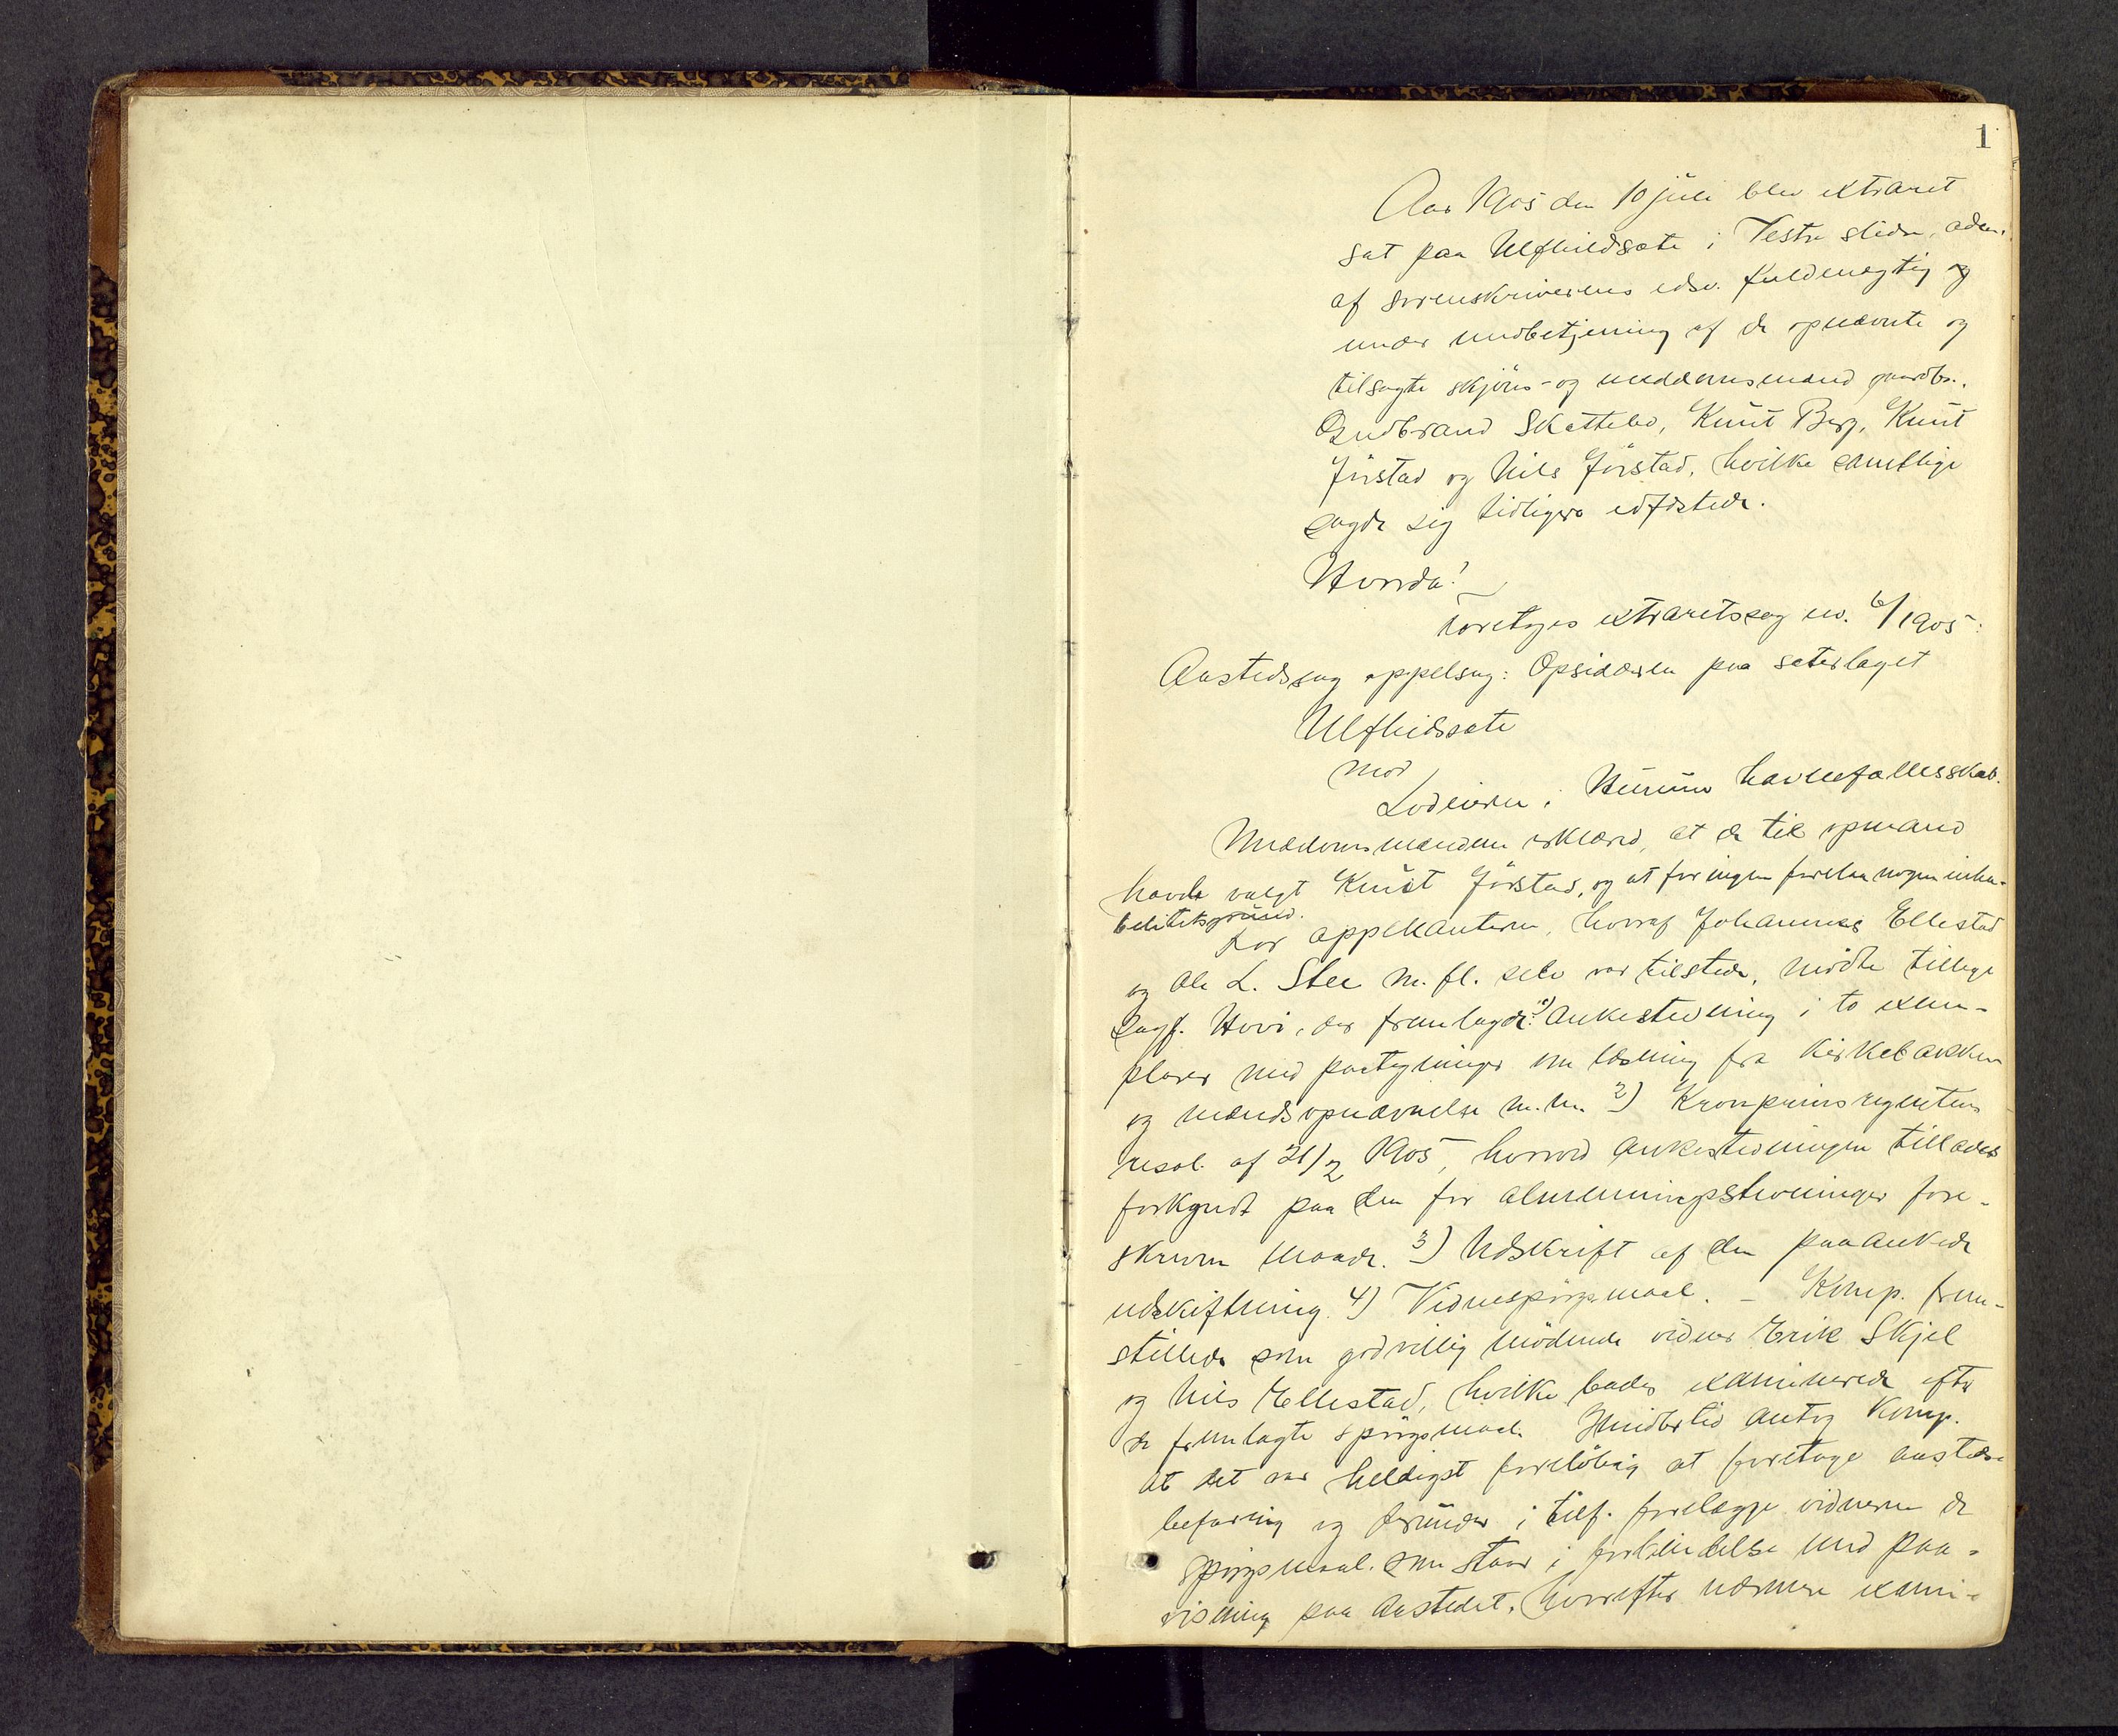 1
Aar 1905 den 10 juli blev extraret
sat paa Ulfhildsæte i Vestre slidre, adm.
af sorenskriverens edsv. fuldmægtig og
under meddbetjening af de opnævnte og
tilsagte skjöns- og meddomsmænd gaardbr.
Gudbrand Skattebo, Knut Berg, Knut
Jörstad og Nils Jörstad, hvilke samtlige
sagde sig tidligere edfæstede.
Hvorda!
foretoges extraretssag no. 6/1905:
Aastedssag appelsag: Opsidderen paa sæterlaget
Ulfhidssæte
mod
Lodeieren i Hurum havnefællesskab.
Meddomsmændene erklæred, at de til opmand
havde valgt Knut Jörstad, og at for ingen forelaa nogen inha-
belitetsgrund.
For appellanterne, hvoraf Johannes Ellestad
og Ole L. Stee m. fl. selv var tilstede, mödte tillige
sagf. Hovi, der fremlagde: 1) Ankestevning i to exem-
plarer med paategninger om læsning fra kirkebakken
og mændsopnævnelse m.m. 2) Kronprinsregentens
resol. af 21/2 1905, hvorved ankestevningen tillades
forkyndt paa den for almenningsstevninger fore-
skrevne maade. 3) Udskrift af den paaankede
udskiftning. 4) Vidnespörgsmaal. – Komp. frem-
stillede som godvillig mödende vidner Erik Skjel
og Nils Ellestad, hvilke bades examinerede efter
de fremlagte spörgsmaal. Imidlertid antog Komp.
at det var heldigst foreløbig at foretage aasteds-
befaring og derunder i tilf. forelægge vidnerne de
spörgsmaal som staar i forbindelse med paa-
visning paa aastedet, hvorefter nærmere exami-